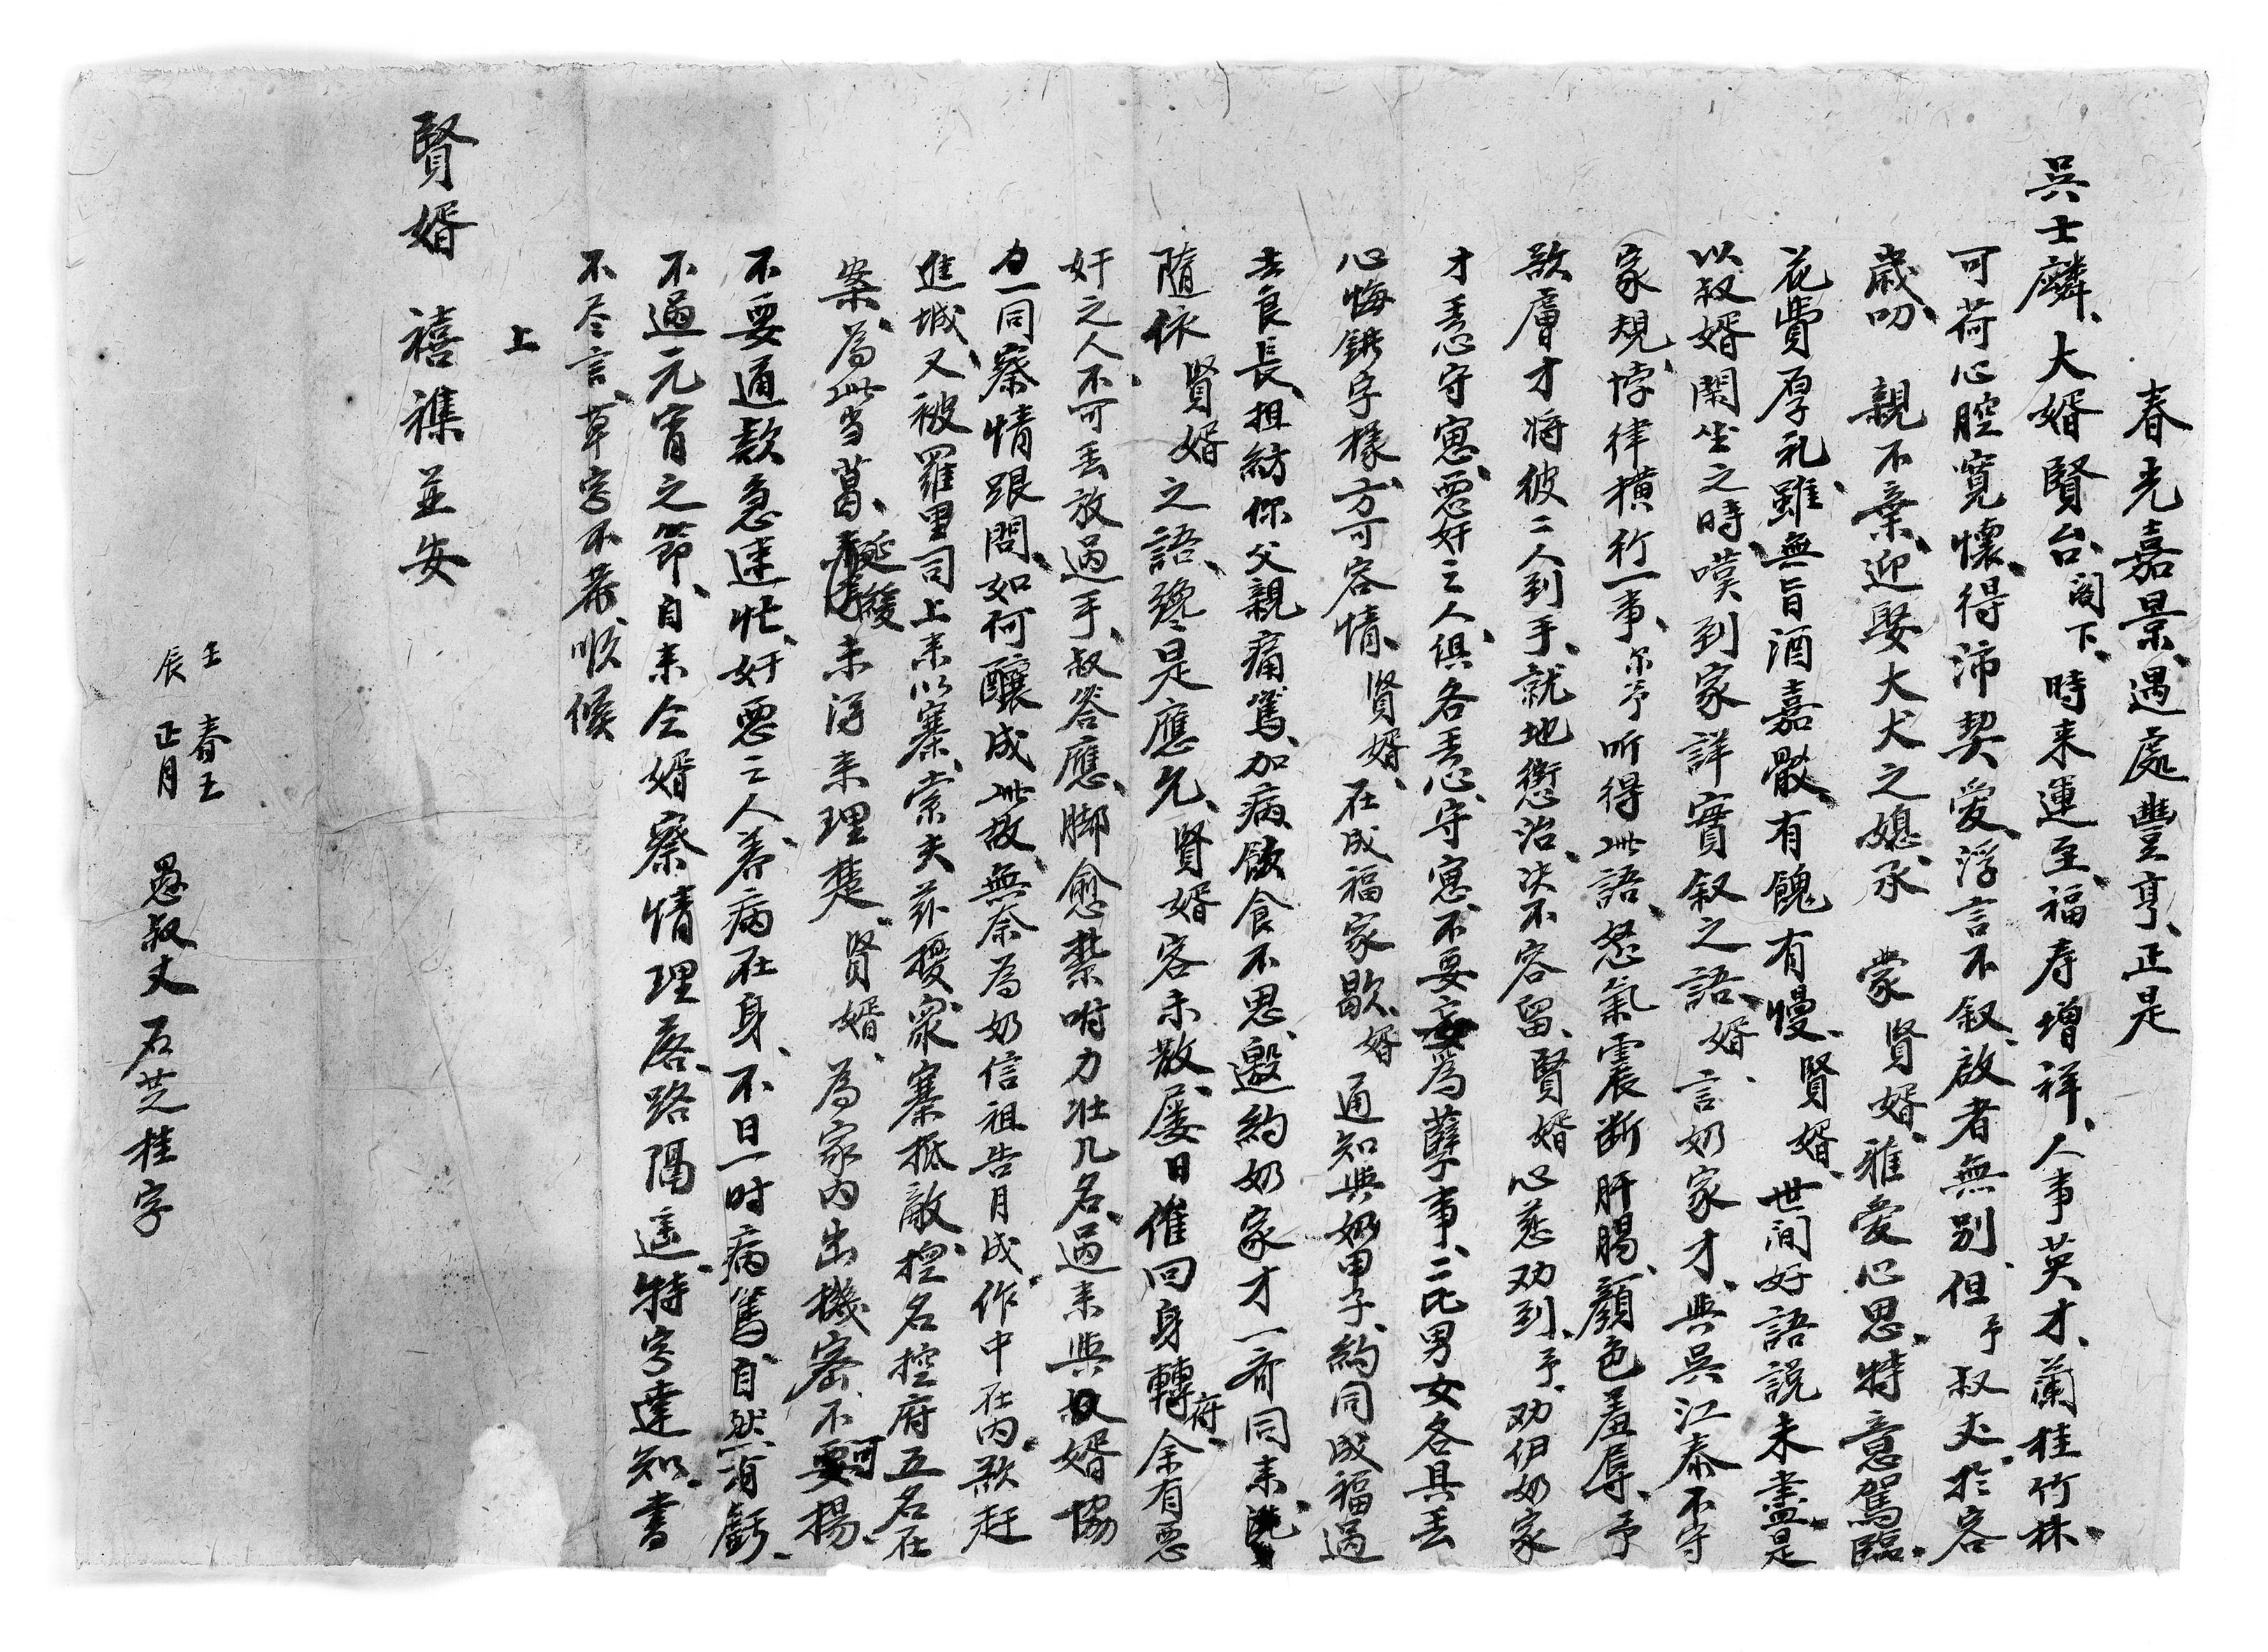 春光嘉景、遇處豐亨、正是
吳士麟、大婿賢台、閣下、時来運至、福寿增祥、人事英才、蘭桂竹林、
可荷心腔寬懷、得沛契愛、浮言不叙、啟者無别、但予叔丈、於客
歲叨 親不棄、迎娶大犬之媳、承 蒙賢婿、雅愛心思、特意駕臨、
花費厚礼、雖無旨酒嘉殽、有餽有慢、賢婿、世间好語説未盡、是
以叔婿閑坐之時、嘆到家詳實叙之語、婿、言奶家才、與吳江泰不守
家規、悖律横行一事、尔予听得此語、怒氣震断肝腸、顔色羞辱、予
欲膚才将彼二人到手、就地懲治、决不容留、賢婿心慈劝到、予、劝伊奶家
才丢心守寃、惡奸之人、俱各丢心、守寃、不要妄為孽事、二比男女各具丢
心悔銹字樣、方可容情、賢婿、在成福家歇、婿 通知與奶甲子、約同成福過
去良長、担紡你父親痛駡、加病飲食不思、邀約奶家才一齊同来
隨依 賢婿之語、纔是應允、賢婿客未散、屡日催回身轉府、余有惡
奸之人、不可丢放過手、叔答應、脚愈紮咐力壮几名、過来與叔婿協
力一同察情跟問、如何釀成此故、無奈為奶信祖告月成、作中在内、欺赶
進城、又被羅里司上来以寨、索夫茶擾、衆寨抵敵、控名控府五名在
案、為此当葛、延緩未得来理楚、賢婿、為家内出機密、不可揚、
不妥通欵急速忙、奸惡二人、养病在身、不日一时病篤、自然有虧、
不過元宵之節、自来仝婿察情理落、路隔遥、特字達知、書
不尽言、草字不恭、順候
上
賢婿 禧禩並安
壬辰 春王正月 愚叔丈石芝桂字